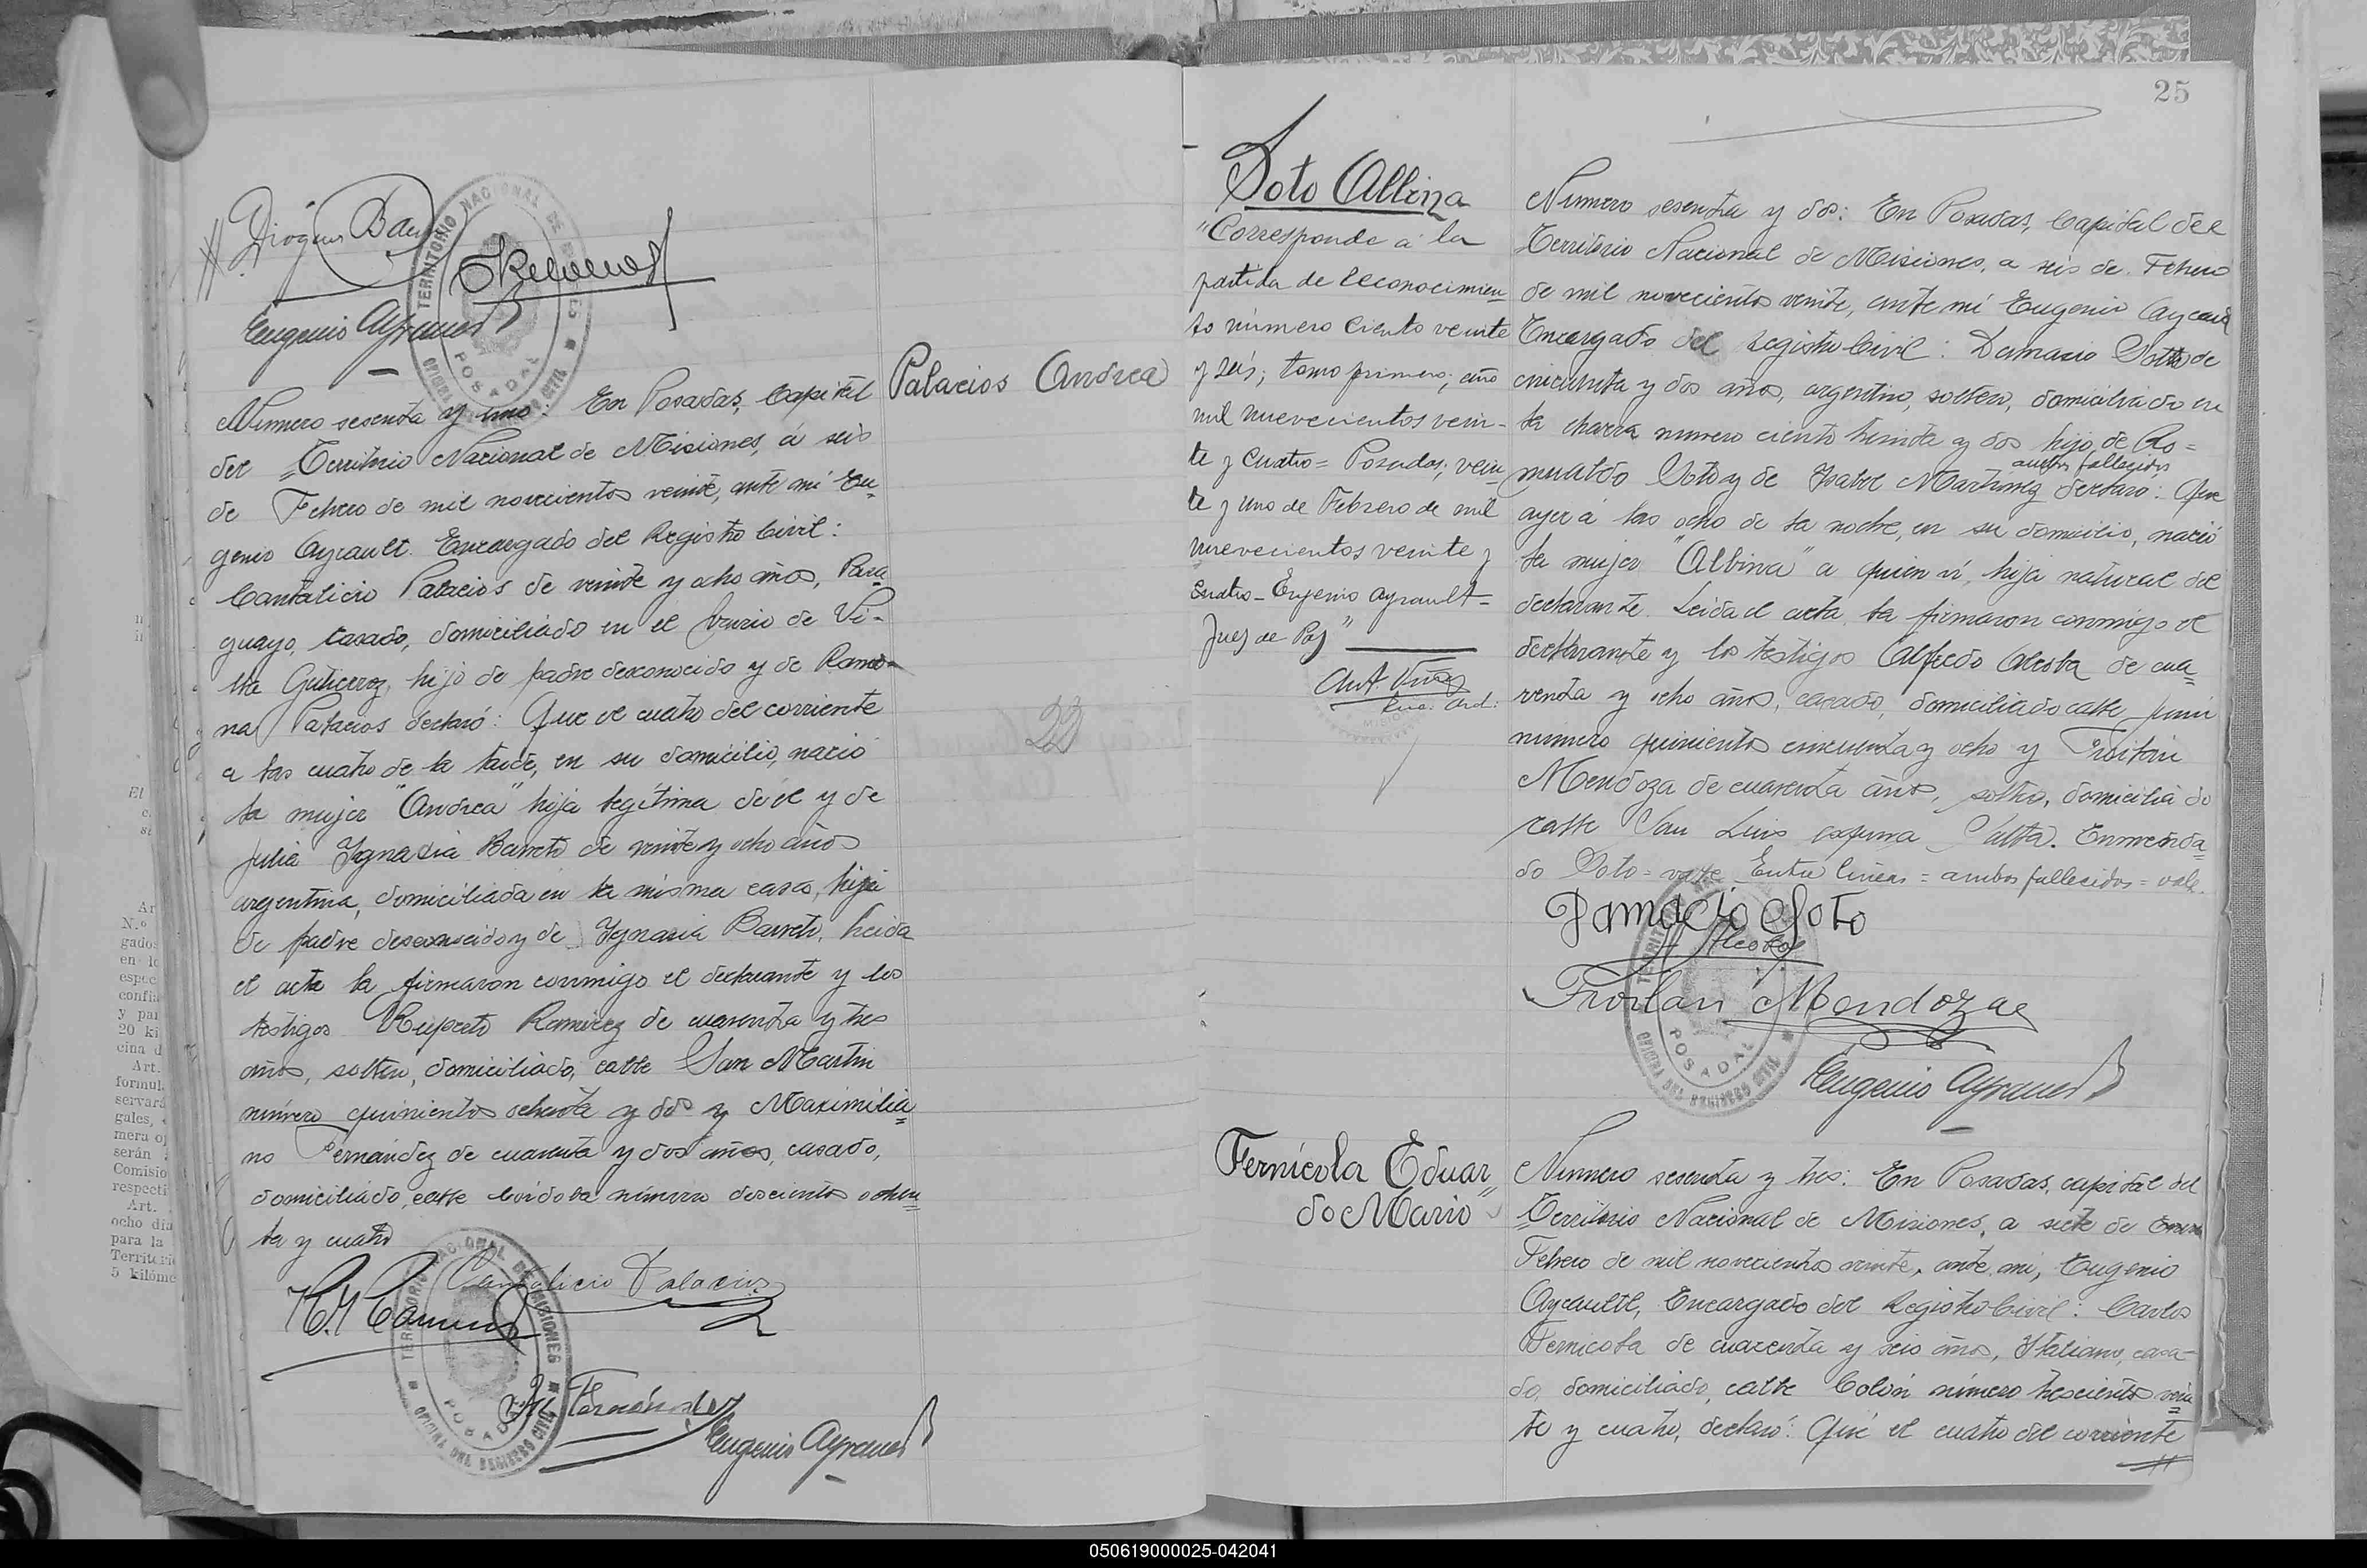 Diógenes
TERRITORIO NACIONAL DE MISIONES
OFICINA DEL REGISTRO CIVIL
POSADAS
Eugenio Ayrault
Palacios Andrea
Número sesenta y uno: En Posadas, Capital
del Territorio Nacional de Misiones, á seis
de Febrero de mil novecientos veinte, ante mí Eu=
genio Ayrault. Encargado del Registro Civil:
Cantalicio Palacios de veinte y ocho años, Para
guayo, casado, domiciliado en el barrio de Vi-
lla Gutierrez, hijo de padre desconocido y de Ramo-
na Palacios declaró: Que el cuatro del corriente
a las cuatro de la tarde, en su domicilio, nació
la mujer "Andrea" hija legítima de él y de
Julia Ygnasia Barreto de veinte y ocho años
argentina, domiciliada en la misma casa, hija
de padre desconocido y de Ygnasia Barreto. Leida
el acta la firmaron conmigo el declarante y los
testigos Ruperto Ramirez de cuarenta y tres
años, soltero, domiciliado, calle San Martin
número quinientos ochenta y dos y Maximilia=
no Fernández de cuarenta y dos años, casado,
domiciliado, calle Córdoba número doscientos ochen=
ta y cuatro
Cantalicio Palacios
TERRITORIO NACIONAL DE MISIONES
OFICINA DEL REGISTRO CIVIL
POSADAS
Fernández
Eugenio Ayrault
22
25
Soto Albina
"Corresponde á la
partida de reconocimien=
to número ciento veinte
y seis; tomo primero; año
mil nuevecientos vein-
te y cuatro = Posadas, vein
te y uno de Febrero de mil
nuevecientos veinte y
cuatro - Eugenio Ayrault -
Juez de Paz"
Número sesenta y dos: En Posadas, Capital del
Territorio Nacional de Misiones, a seis de Febrero
de mil novecientos veinte, ante mí Eugenio Ayrault
Encargado del Registro Civil: Damasio Soto de
cincuenta y dos años, argentino, soltero, domiciliado en
la chacra numero ciento treinta y dos hijo de Ro=
ambos fallecidos
mualdo Soto y de Isabel Martinez declaro: Que
ayer á las ocho de la noche, en su domicilio, nació
la mujer "Albina" a quien ví, hija natural del
declarante. Leida el acta, la firmaron conmigo el
declarante y los testigos Alfredo Acosta de cua=
renta y ocho años, casado, domiciliado calle Junin
numero quinientos cincuenta y ocho y Froilán
Mendoza de cuarenta años, soltero, domiciliado
calle San Luis esquina Salta. Enmenda=
do Soto = vale Entre lineas = ambos fallecidos = vale.
Damacio Soto
Acosta
Froilan Mendoza
TERRITORIO
OFICINA DEL REGISTRO CIVIL
POSADAS
Eugenio Ayrault
Fernícola Eduar
do Mario"
Número sesenta y tres: En Posadas, capital del
Territorio Nacional de Misiones, a siete de
Febrero de mil novecientos veinte, ante mí, Eugenio
Ayrault, Encargado del Registro Civil: Carlos
Fernicola de cuarenta y seis años, Italiano, casa-
do, domiciliado, calle Colón número trescientos vein=
te y cuatro, declaró: Que el cuatro del corriente
El
Ar
N.º
gados
en lo
espec
confia
y par
20 ki
cina d
Art.
formul
servará
gales,
mera o
serán
Comisio
respecti
Art.
ocho día
para la
Territori
5 kilóme
050619000025-042041